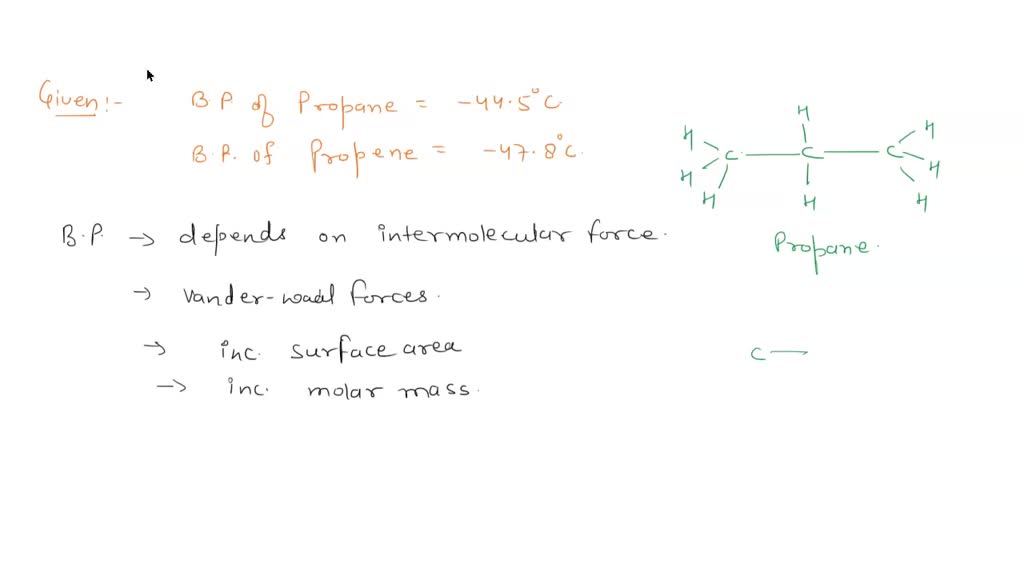 Given:- B.P. of Propane = -44.5°C
B.P. of Propene = -47.8°C.
B.P. → depends on intermolecular force.
→ Vander-waal forces.
→ inc. surface area
→ inc. molar mass.
H H H
H C C C H
H H H H
Propane.
C